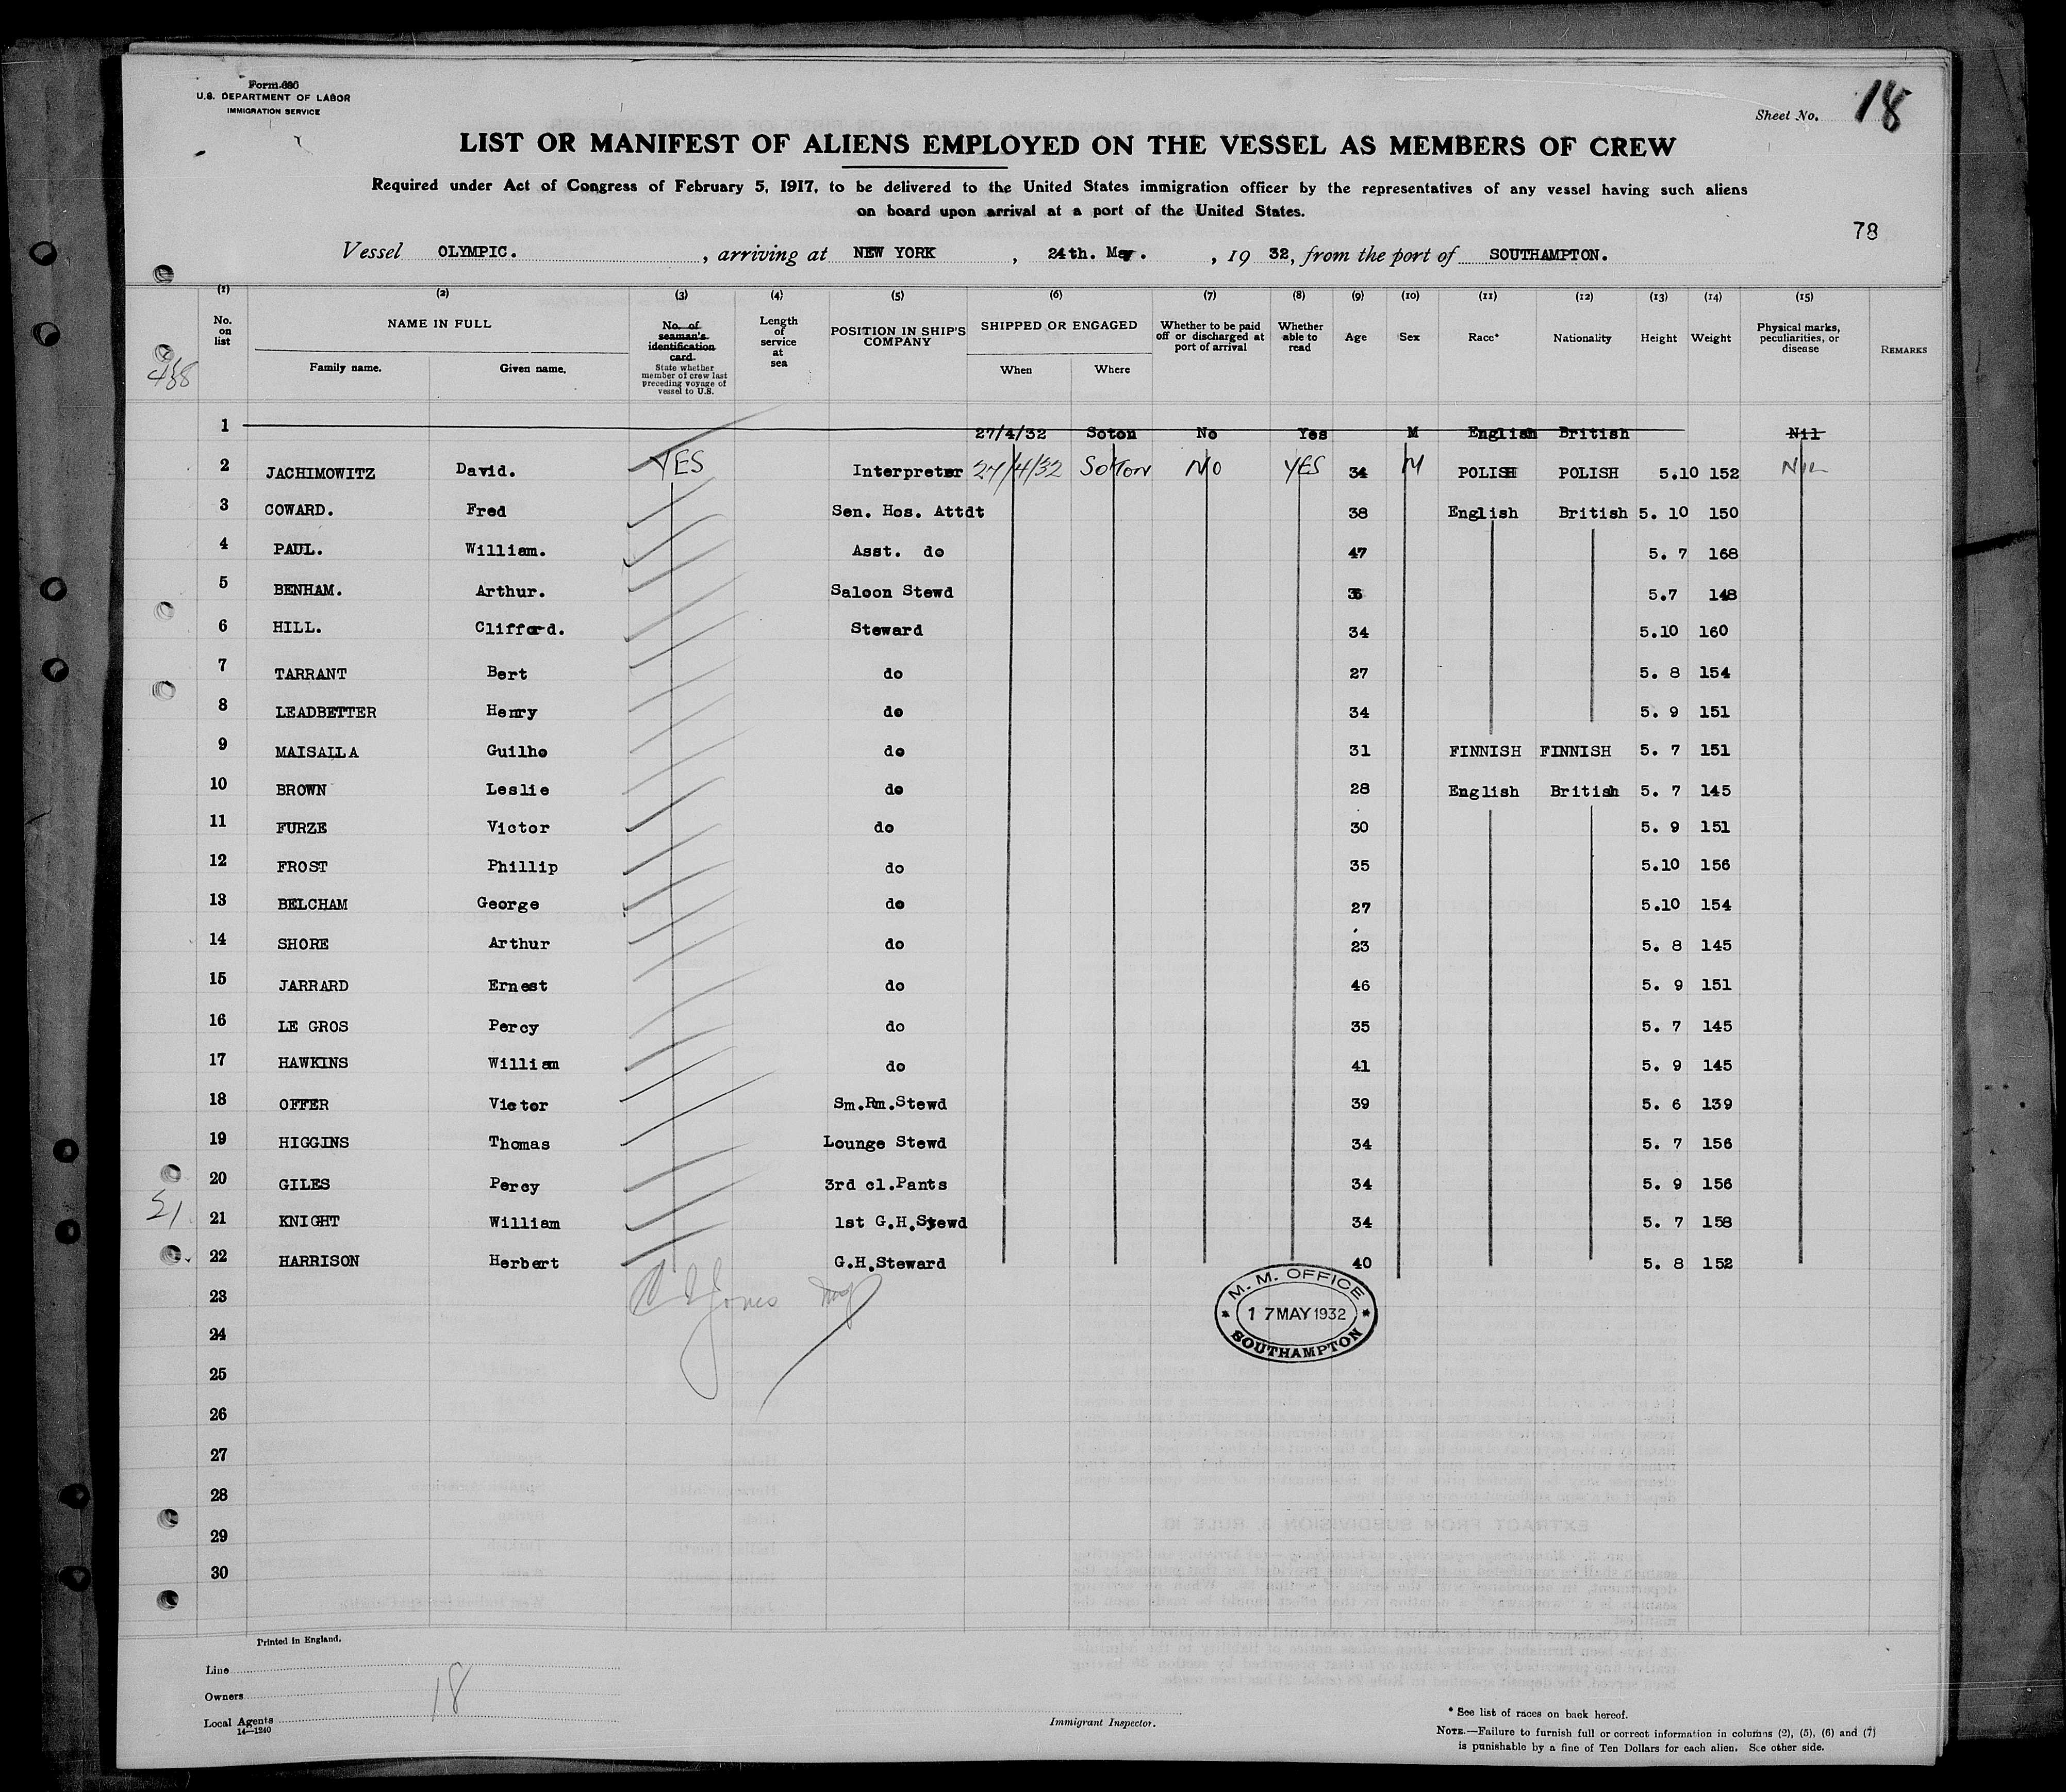 Form 680
U.S. DEPARTMENT OF LABOR
IMMIGRATION SERVICE
Sheet No. 18
LIST OR MANIFEST OF ALIENS EMPLOYED ON THE VESSEL AS MEMBERS OF CREW
Required under Act of Congress of February 5, 1917, to be delivered to the United States immigration officer by the representatives of any vessel having such aliens
on board upon arrival at a port of the United States.
78
Vessel OLYMPIC. , arriving at NEW YORK , 24th. May. , 19 32, from the port of SOUTHAMPTON.
(1) (2) (3) (4) (5) (6) (7) (8) (9) (10) (11) (12) (13) (14) (15)
No. on list
NAME IN FULL
Family name. Given name.
No. of seaman's identification card.
State whether member of crew last preceding voyage of vessel to U.S.
Length of service at sea
POSITION IN SHIP'S COMPANY
SHIPPED OR ENGAGED
When Where
Whether to be paid off or discharged at port of arrival
Whether able to read
Age
Sex
Race*
Nationality
Height
Weight
Physical marks, peculiarities, or disease
REMARKS
1 27/4/32 Soton No Yes M English British Nil
2 JACHIMOWITZ David. YES Interpreter 27/4/32 SOTON NO YES 34 M POLISH POLISH 5.10 152 NIL
3 COWARD. Fred Sen. Hos. Attdt 38 English British 5. 10 150
4 PAUL. William. Asst. do 47 5. 7 168
5 BENHAM. Arthur. Saloon Stewd 5.7 148
6 HILL. Clifford. Steward 34 5.10 160
7 TARRANT Bert do 27 5. 8 154
8 LEADBETTER Henry do 34 5. 9 151
9 MAISALLA Guilho do 31 FINNISH FINNISH 5. 7 151
10 BROWN Leslie do 28 English British 5. 7 145
11 FURZE Victor do 30 5. 9 151
12 FROST Phillip do 35 5.10 156
13 BELCHAM George do 27 5.10 154
14 SHORE Arthur do 23 5. 8 145
15 JARRARD Ernest do 46 5. 9 151
16 LE GROS Percy do 35 5. 7 145
17 HAWKINS William do 41 5. 9 145
18 OFFER Victor Sm.Rm.Stewd 39 5. 6 139
19 HIGGINS Thomas Lounge Stewd 34 5. 7 156
20 GILES Percy 3rd cl.Pants 34 5. 9 156
21 21 KNIGHT William 1st G.H.Stewd 34 5. 7 158
22 HARRISON Herbert G.H.Steward 40 5. 8 152
23
Jones
M. M. OFFICE
17 MAY 1932
SOUTHAMPTON
24
25
26
27
28
29
30
Printed in England.
Line
Owners
18
Local Agents
14—1240
Immigrant Inspector.
* See list of races on back hereof.
NOTE.—Failure to furnish full or correct information in columns (2), (5), (6) and (7)
is punishable by a fine of Ten Dollars for each alien. See other side.